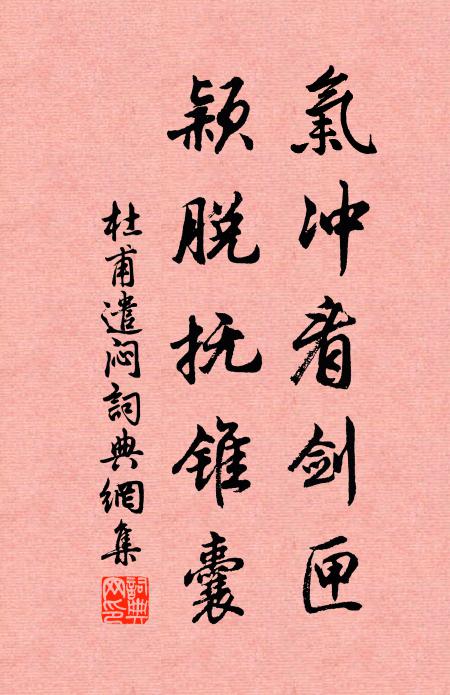 氣冲看剑匣
颖脱抚锥囊
杜甫遣闷詞典網集
詞典网印